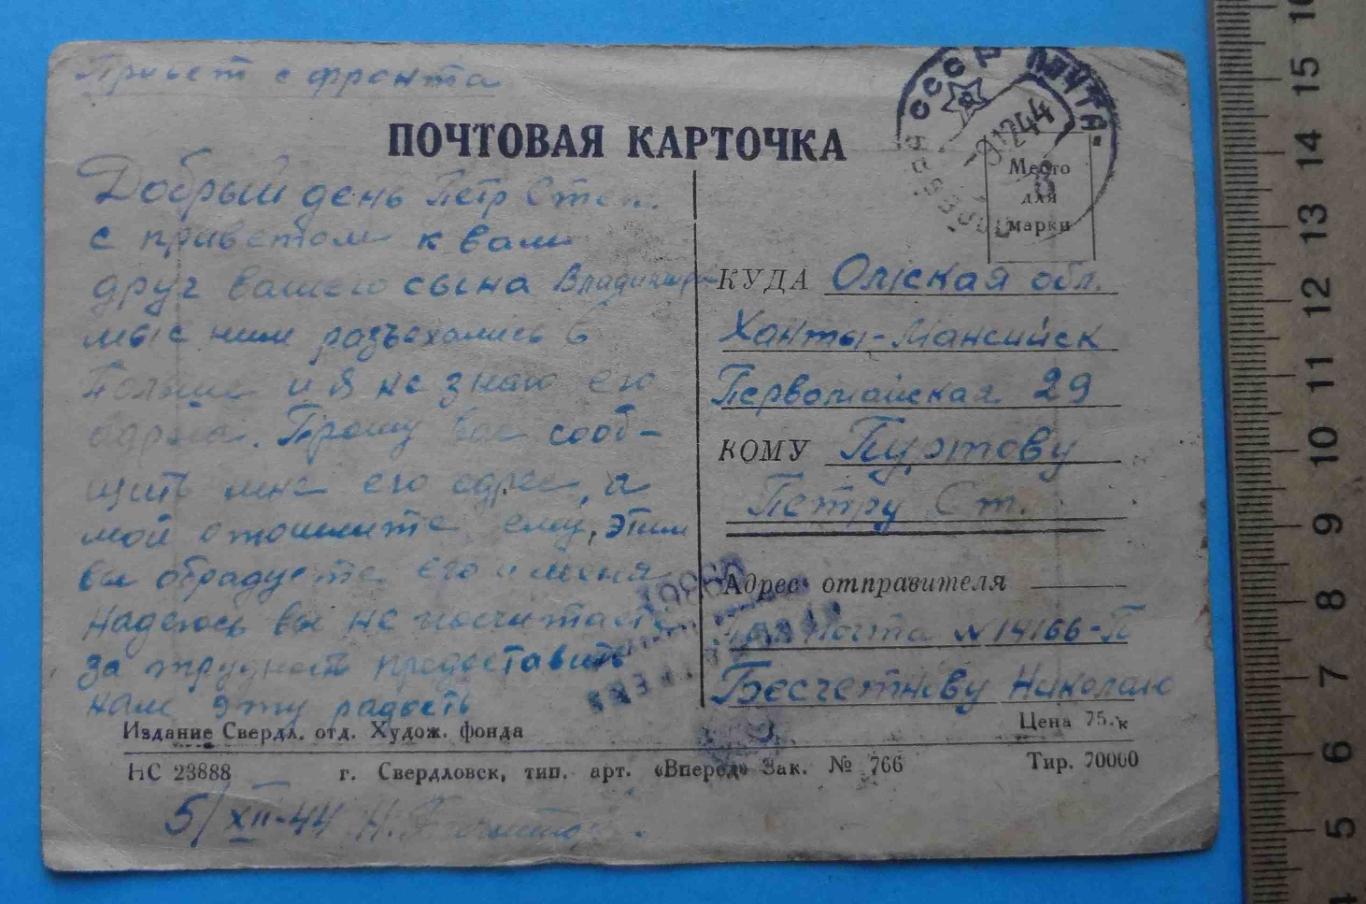 Привет с фронта
ПОЧТОВАЯ КАРТОЧКА
СССР ПОЧТА
12 44
Место
для
марки
Добрый день Петр Степ.
с приветом к вам
друг вашего сына Владимира
мы с ним разъехались в
Польше и я не знаю его
адреса. Прошу вас сооб-
щить мне его адрес, а
мой отошлите ему, этим
вы обрадуете его и меня
Надеюсь вы не посчитаете
за трудност предоставить
нам эту радость
КУДА Омская обл.
Ханты-Мансийск
Первомайская 29
КОМУ Пуртову
Петру Ст.
Адрес отправителя
почта №14166-П
Бесчетнову Николаю
Издание Свердл. отд. Худож. фонда
Цена 75 к
НС 23888 г. Свердловск, тип. арт. «Вперед» Зак. № 766 Тир. 70000
5/XII-44 Н.
5 6 7 8 9 10 11 12 13 14 15 16